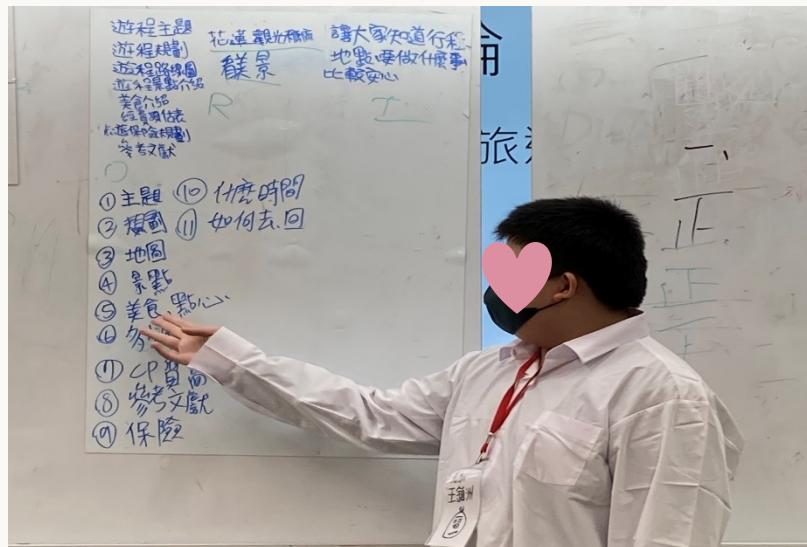 遊程主題
遊程規劃
遊程路線圖
遊程景點介紹
美食介紹
經費預估表
旅遊保險規劃
參考文獻
花蓮觀光
美景
R
讓大家知道行程、
地點、要做什麼事
比較安心
I
O
① 主題
② 規劃
③ 地圖
④ 景點
⑤ 美食、點心
⑥
⑦ CP
⑧ 參考文獻
⑨ 保險
⑩ 什麼時間
⑪ 如何去、回
論
旅遊
二、
正
正